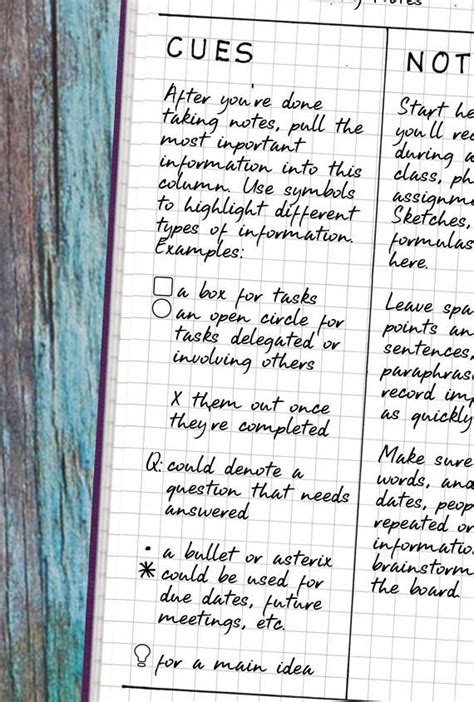 Notes
CUES
After you're done
taking notes, pull the
most important
information into this
column. Use symbols
to highlight different
types of information.
Examples:
a box for tasks
an open circle for
tasks delegated or
involving others
X them out once
they're completed
Q: could denote a
question that needs
answered
• a bullet or asterix
* could be used for
due dates, future
meetings, etc.
for a main idea
NOT
Start he
you'll rec
during a
class, ph
assignme
Sketches,
formulas
here.
Leave spa
points an
sentences,
paraphras
record im
as quickly
Make sure
words, and
dates, peop
repeated or
informatio
brainstorm
the board.